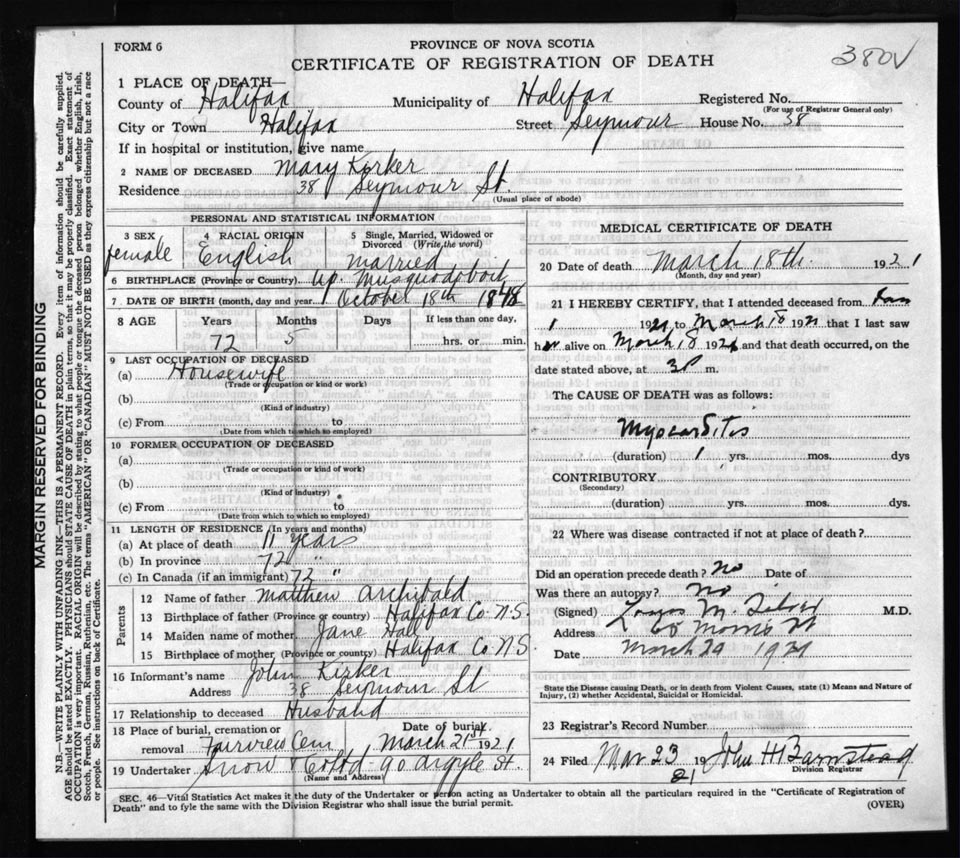 FORM 6
PROVINCE OF NOVA SCOTIA
CERTIFICATE OF REGISTRATION OF DEATH
380V
1 PLACE OF DEATH—
County of Halifax Municipality of Halifax Registered No.
(For use of Registrar General only)
City or Town Halifax Street Seymour House No. 38
If in hospital or institution, give name
2 NAME OF DECEASED Mary Kirker
Residence 38 Seymour St.
(Usual place of abode)
PERSONAL AND STATISTICAL INFORMATION
3 SEX 4 RACIAL ORIGIN 5 Single, Married, Widowed or Divorced (Write the word)
female English married
6 BIRTHPLACE (Province or Country) Up. Musquodoboit
7 DATE OF BIRTH (month, day and year) October 18th 1848
8 AGE Years Months Days If less than one day,
72 5 hrs. or min.
9 LAST OCCUPATION OF DECEASED
(a) Housewife
(Trade or occupation or kind of work)
(b)
(Kind of industry)
(c) From to
(Date from which to which so employed)
10 FORMER OCCUPATION OF DECEASED
(a)
(Trade or occupation or kind of work)
(b)
(Kind of industry)
(c) From to
(Date from which to which so employed)
11 LENGTH OF RESIDENCE (In years and months)
(a) At place of death 11 years
(b) In province 72 "
(c) In Canada (if an immigrant) 72 "
Parents
12 Name of father Matthew Archibald
13 Birthplace of father (Province or country) Halifax Co N.S.
14 Maiden name of mother Jane Hall
15 Birthplace of mother (Province or country) Halifax Co N.S
16 Informant's name John Kirker
Address 38 Seymour St
17 Relationship to deceased Husband
18 Place of burial, cremation or removal Fairview Cem Date of burial March 21st 1921
19 Undertaker Snow & Co Ltd - 90 Argyle St.
(Name and Address)
MEDICAL CERTIFICATE OF DEATH
20 Date of death March 18th. 1921
(Month, day and year)
21 I HEREBY CERTIFY, that I attended deceased from Jan
1 1921 to March 18 1921 that I last saw
her alive on March 18 1921 and that death occurred, on the
date stated above, at 3 P m.
The CAUSE OF DEATH was as follows:
Myocarditis
(duration) 1 yrs. mos. dys
CONTRIBUTORY
(Secondary)
(duration) yrs. mos. dys.
22 Where was disease contracted if not at place of death?
Did an operation precede death? No Date of
Was there an autopsy? No
(Signed) M. M.D.
Address Morris St
Date March 1921
State the Disease causing Death, or in death from Violent Causes, state (1) Means and Nature of
Injury, (2) whether Accidental, Suicidal or Homicidal.
23 Registrar's Record Number
24 Filed Mar 23 1921 John H Barnstead
Division Registrar
SEC. 46—Vital Statistics Act makes it the duty of the Undertaker or person acting as Undertaker to obtain all the particulars required in the "Certificate of Registration of
Death" and to fyle the same with the Division Registrar who shall issue the burial permit.
(OVER)
MARGIN RESERVED FOR BINDING
N.B.—WRITE PLAINLY WITH UNFADING INK—THIS IS A PERMANENT RECORD. Every item of information should be carefully supplied.
AGE should be stated EXACTLY. PHYSICIANS should STATE CAUSE OF DEATH in plain terms, so that it may be properly classified. Exact statement of
OCCUPATION is very important. RACIAL ORIGIN will be described by stating to what people or tongue the deceased person belonged whether English, Irish,
Scotch, French, German, Russian, Ruthenian, etc. The terms "AMERICAN" OR "CANADIAN" MUST NOT BE USED as they express citizenship but not a race
or people. See instructions on back of Certificate.